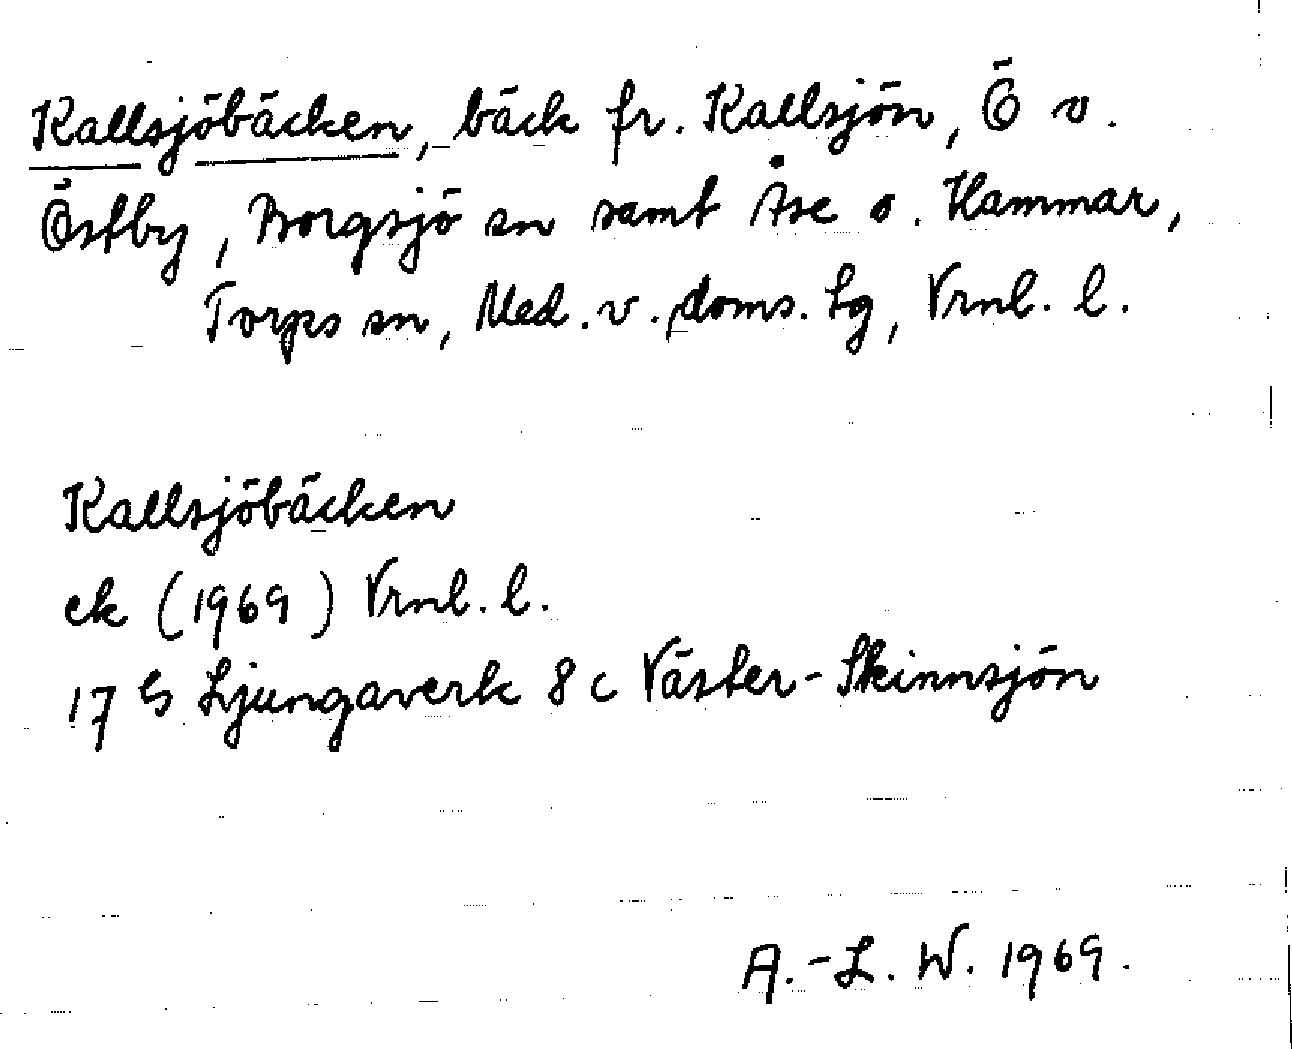 Kallsjöbäcken, bäck fr. Kallsjön, Ö v.
Östby, Borgsjö sn samt Åse o. Hammar,
Torps sn, Med. v. doms. lg, Vrnl. l.
Kallsjöbäcken
ek (1969) Vrnl. l.
17 G Ljungaverk 8 c Väster-Skinnsjön
A.-L. W. 1969.